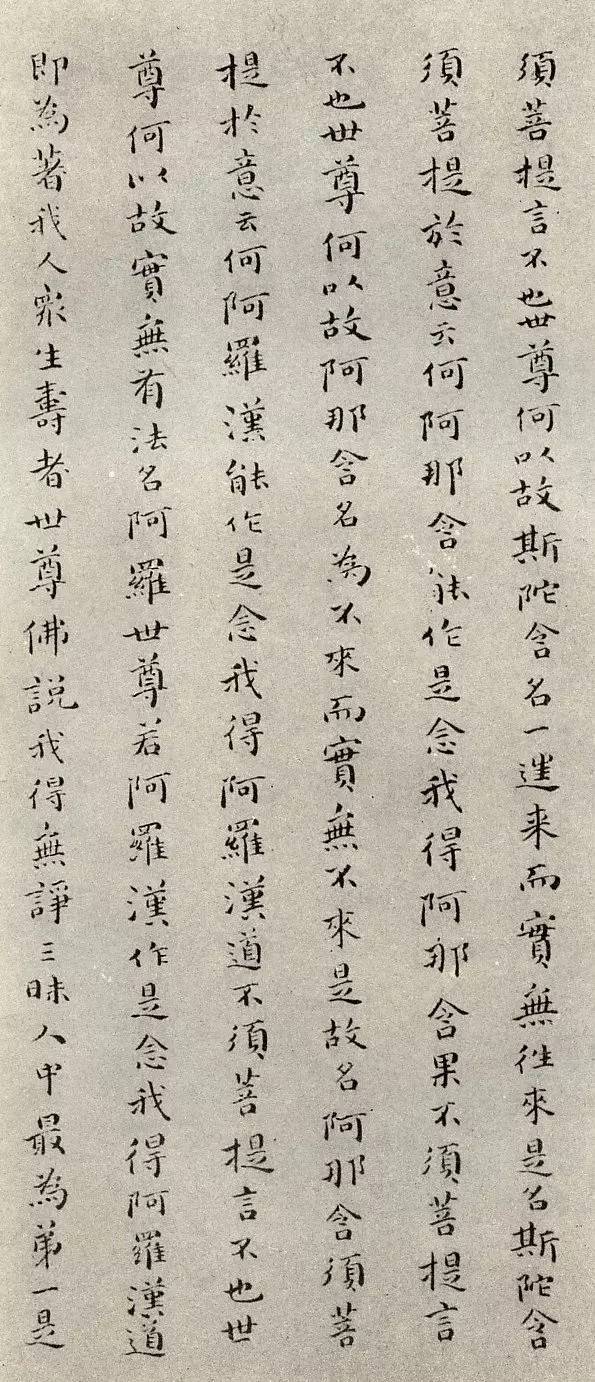 須菩提言不也世尊何以故斯陀含名一迬来而實無徃來是名斯陀含
須菩提於意云何阿那含能作是念我得阿那含果不須菩提言
不也世尊何以故阿那含名為不來而實無不來是故名阿那含須菩
提於意云何阿羅漢能作是念我得阿羅漢道不須菩提言不也世
尊何以故實無有法名阿羅世尊若阿羅漢作是念我得阿羅漢道
即為著我人衆生壽者世尊佛說我得無諍三昧人中最為第一是